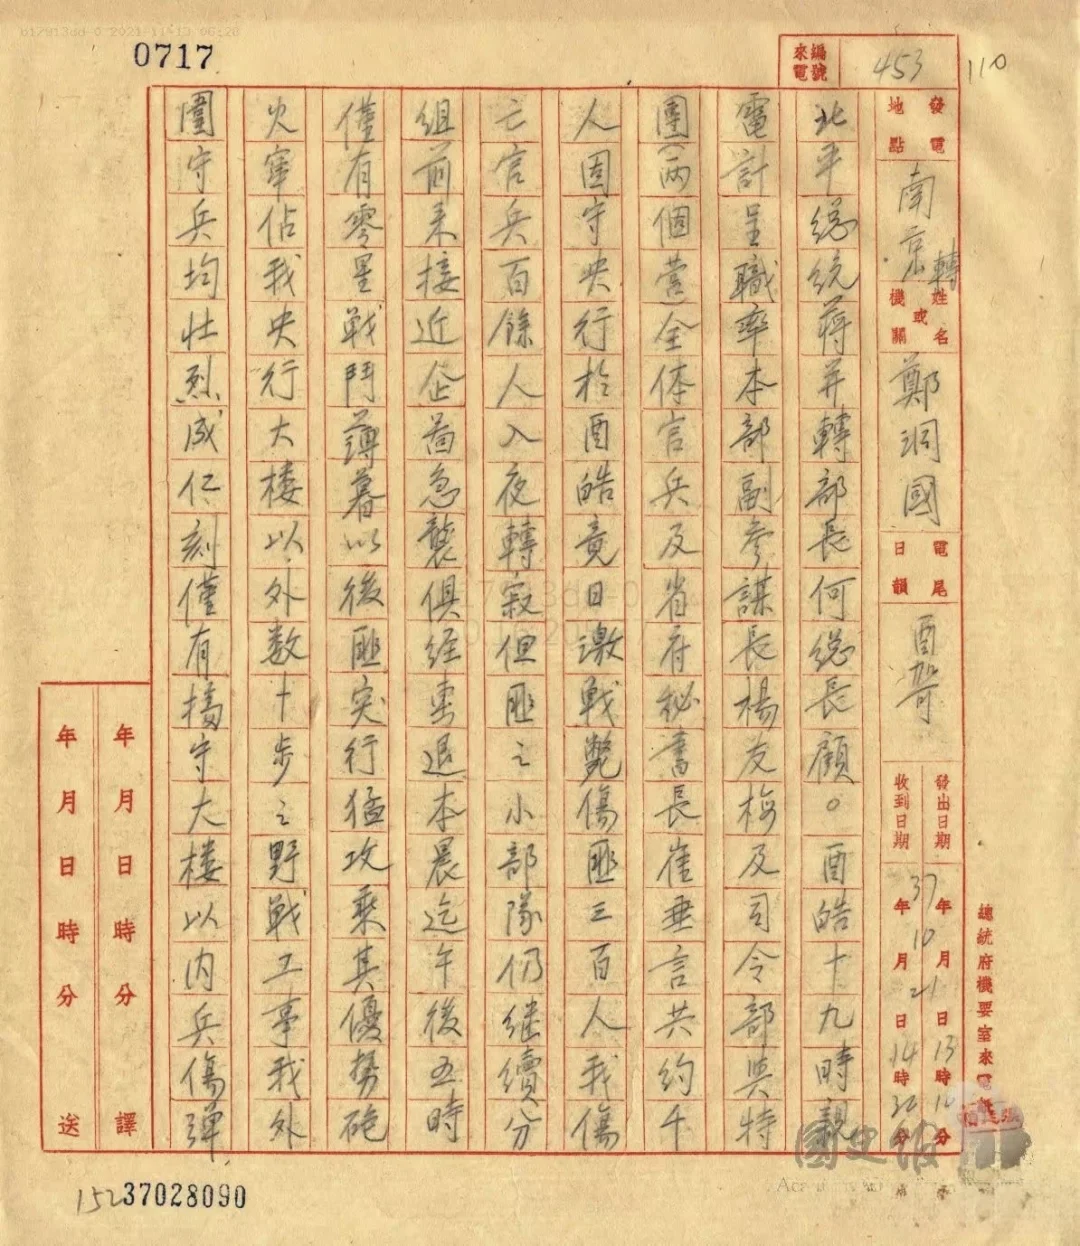 0717
來電編號 453
110
發電地點 南京轉
姓名或機關 鄭洞國
電尾日韻 酉哿
發出日期 37年10月21日13時10分
收到日期 年月日14時30分
總統府機要室來電
北平總統蔣并轉部長何總長顧。酉皓十九時親
電計呈職率本部副參謀長楊友梅及司令部與特
團(兩個營全体官兵及省府秘書長崔垂言共約千
人固守央行於酉皓竟日激戰斃傷匪三百人我傷
亡官兵百餘人入夜轉寂但匪之小部隊仍继續分
組前来接近企畵急襲俱经擊退本晨迄午後五時
僅有零星戰鬥薄暮以後匪突行猛攻乘其優勢砲
火窜佔我央行大楼以外数十步之野戰工事我外
圍守兵均壮烈成仁刻僅有據守大楼以内兵傷彈
年月日時分譯
年月日時分送
152
37028090
國史館